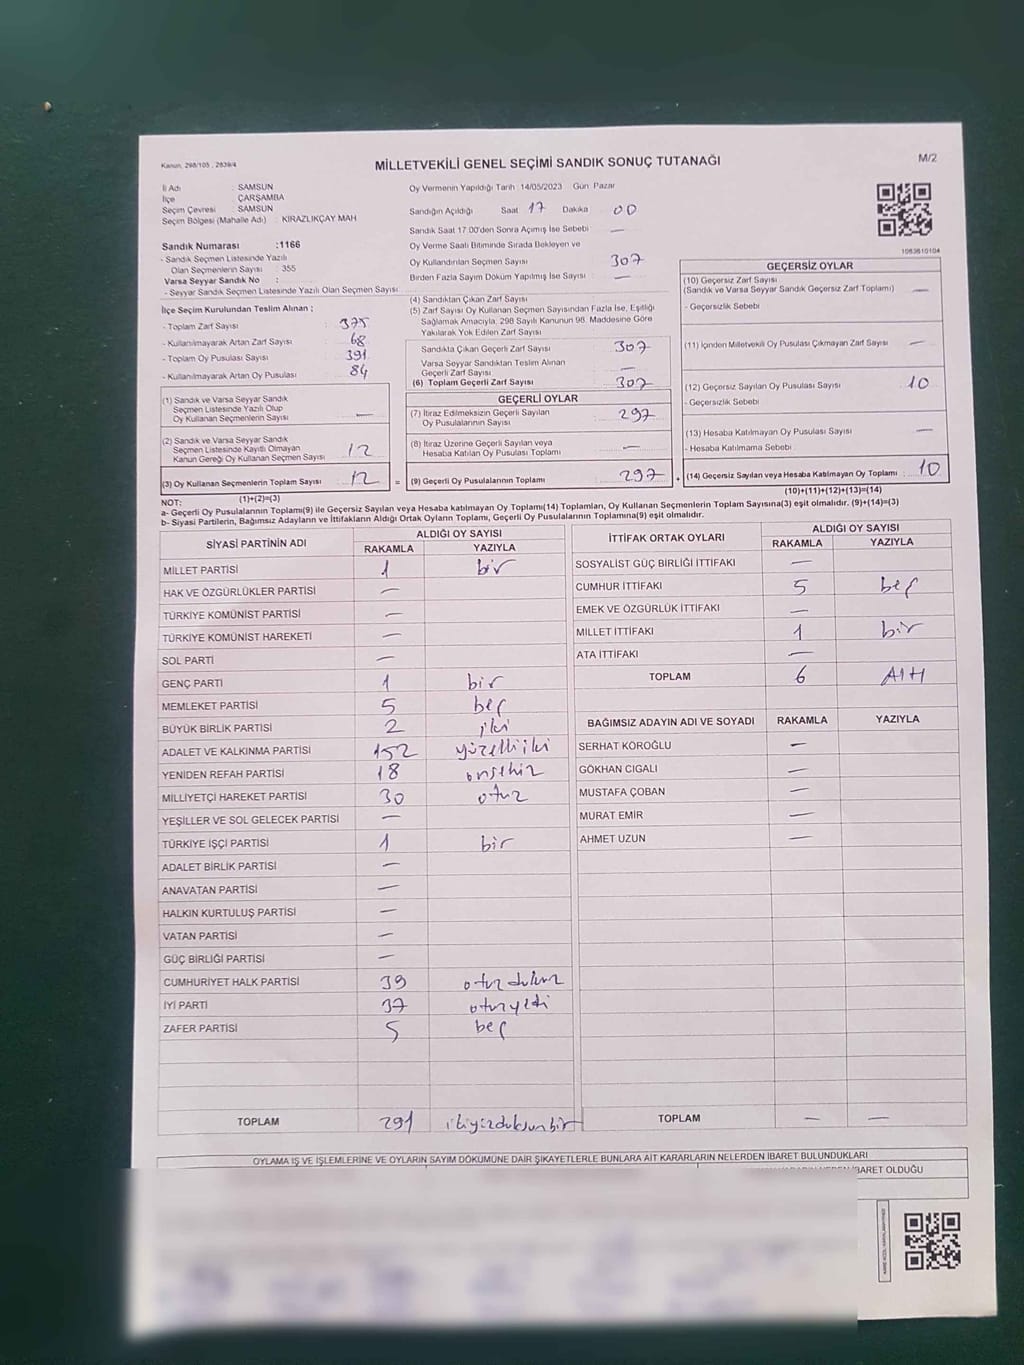 Kanun, 298/105 , 2839/4
MİLLETVEKİLİ GENEL SEÇİMİ SANDIK SONUÇ TUTANAĞI
M/2
İl Adı : SAMSUN
İlçe : ÇARŞAMBA
Seçim Çevresi : SAMSUN
Seçim Bölgesi (Mahalle Adı) : KIRAZLIKÇAY MAH
Sandık Numarası :1166
- Sandık Seçmen Listesinde Yazılı
Olan Seçmenlerin Sayısı : 355
Varsa Seyyar Sandık No :
- Seyyar Sandık Seçmen Listesinde Yazılı Olan Seçmen Sayısı :
Oy Vermenin Yapıldığı Tarih :14/05/2023 Gün Pazar
Sandığın Açıldığı Saat 17 Dakika 00
Sandık Saat 17.00'den Sonra Açımış İse Sebebi —
Oy Verme Saati Bitiminde Sırada Bekleyen ve
Oy Kullandırılan Seçmen Sayısı 307
Birden Fazla Sayım Döküm Yapılmış İse Sayısı —
1083610104
İlçe Seçim Kurulundan Teslim Alınan ;
- Toplam Zarf Sayısı : 375
- Kullanılmayarak Artan Zarf Sayısı : 68
- Toplam Oy Pusulası Sayısı : 391
- Kullanılmayarak Artan Oy Pusulası : 84
(1) Sandık ve Varsa Seyyar Sandık
Seçmen Listesinde Yazılı Olup
Oy Kullanan Seçmenlerin Sayısı —
(2) Sandık ve Varsa Seyyar Sandık
Seçmen Listesinde Kayıtlı Olmayan
Kanun Gereği Oy Kullanan Seçmen Sayısı 12
(3) Oy Kullanan Seçmenlerin Toplam Sayısı 12 =
(1)+(2)=(3)
(4) Sandıktan Çıkan Zarf Sayısı
(5) Zarf Sayısı Oy Kullanan Seçmen Sayısından Fazla İse, Eşitliği
Sağlamak Amacıyla, 298 Sayılı Kanunun 98. Maddesine Göre
Yakılarak Yok Edilen Zarf Sayısı
Sandıkta Çıkan Geçerli Zarf Sayısı 307
Varsa Seyyar Sandıktan Teslim Alınan
Geçerli Zarf Sayısı —
(6) Toplam Geçerli Zarf Sayısı 307
GEÇERLİ OYLAR
(7) İtiraz Edilmeksizin Geçerli Sayılan
Oy Pusulalarının Sayısı 297
(8) İtiraz Üzerine Geçerli Sayılan veya
Hesaba Katılan Oy Pusulası Toplamı —
(9) Geçerli Oy Pusulalarının Toplamı 297 +
GEÇERSİZ OYLAR
(10) Geçersiz Zarf Sayısı
(Sandık ve Varsa Seyyar Sandık Geçersiz Zarf Toplamı) —
- Geçersizlik Sebebi
(11) İçinden Milletvekili Oy Pusulası Çıkmayan Zarf Sayısı —
(12) Geçersiz Sayılan Oy Pusulası Sayısı 10
- Geçersizlik Sebebi
(13) Hesaba Katılmayan Oy Pusulası Sayısı —
- Hesaba Katılmama Sebebi
(14) Geçersiz Sayılan veya Hesaba Katılmayan Oy Toplamı 10
(10)+(11)+(12)+(13)=(14)
NOT:
a- Geçerli Oy Pusulalarının Toplamı(9) ile Geçersiz Sayılan veya Hesaba katılmayan Oy Toplamı(14) Toplamları, Oy Kullanan Seçmenlerin Toplam Sayısına(3) eşit olmalıdır. (9)+(14)=(3)
b- Siyasi Partilerin, Bağımsız Adayların ve İttifakların Aldığı Ortak Oyların Toplamı, Geçerli Oy Pusulalarının Toplamına(9) eşit olmalıdır.
SİYASİ PARTİNİN ADI ALDIĞI OY SAYISI
RAKAMLA YAZIYLA
MİLLET PARTİSİ 1 bir
HAK VE ÖZGÜRLÜKLER PARTİSİ —
TÜRKİYE KOMÜNİST PARTİSİ —
TÜRKİYE KOMÜNİST HAREKETİ —
SOL PARTİ —
GENÇ PARTİ 1 bir
MEMLEKET PARTİSİ 5 beş
BÜYÜK BİRLİK PARTİSİ 2 iki
ADALET VE KALKINMA PARTİSİ 152 yüzelliiki
YENİDEN REFAH PARTİSİ 18 onsekiz
MİLLİYETÇİ HAREKET PARTİSİ 30 otuz
YEŞİLLER VE SOL GELECEK PARTİSİ —
TÜRKİYE İŞÇİ PARTİSİ 1 bir
ADALET BİRLİK PARTİSİ —
ANAVATAN PARTİSİ —
HALKIN KURTULUŞ PARTİSİ —
VATAN PARTİSİ —
GÜÇ BİRLİĞİ PARTİSİ —
CUMHURİYET HALK PARTİSİ 39 otuz dokuz
İYİ PARTİ 37 otuzyedi
ZAFER PARTİSİ 5 beş
TOPLAM 291 ikiyüzdoksanbir
İTTİFAK ORTAK OYLARI ALDIĞI OY SAYISI
RAKAMLA YAZIYLA
SOSYALİST GÜÇ BİRLİĞİ İTTİFAKI —
CUMHUR İTTİFAKI 5 beş
EMEK VE ÖZGÜRLÜK İTTİFAKI —
MİLLET İTTİFAKI 1 bir
ATA İTTİFAKI —
TOPLAM 6 Altı
BAĞIMSIZ ADAYIN ADI VE SOYADI RAKAMLA YAZIYLA
SERHAT KÖROĞLU —
GÖKHAN CIGALI —
MUSTAFA ÇOBAN —
MURAT EMİR —
AHMET UZUN —
TOPLAM — —
OYLAMA İŞ VE İŞLEMLERİNE VE OYLARIN SAYIM DÖKÜMÜNE DAİR ŞİKAYETLERLE BUNLARA AİT KARARLARIN NELERDEN İBARET BULUNDUKLARI
İBARET OLDUĞU